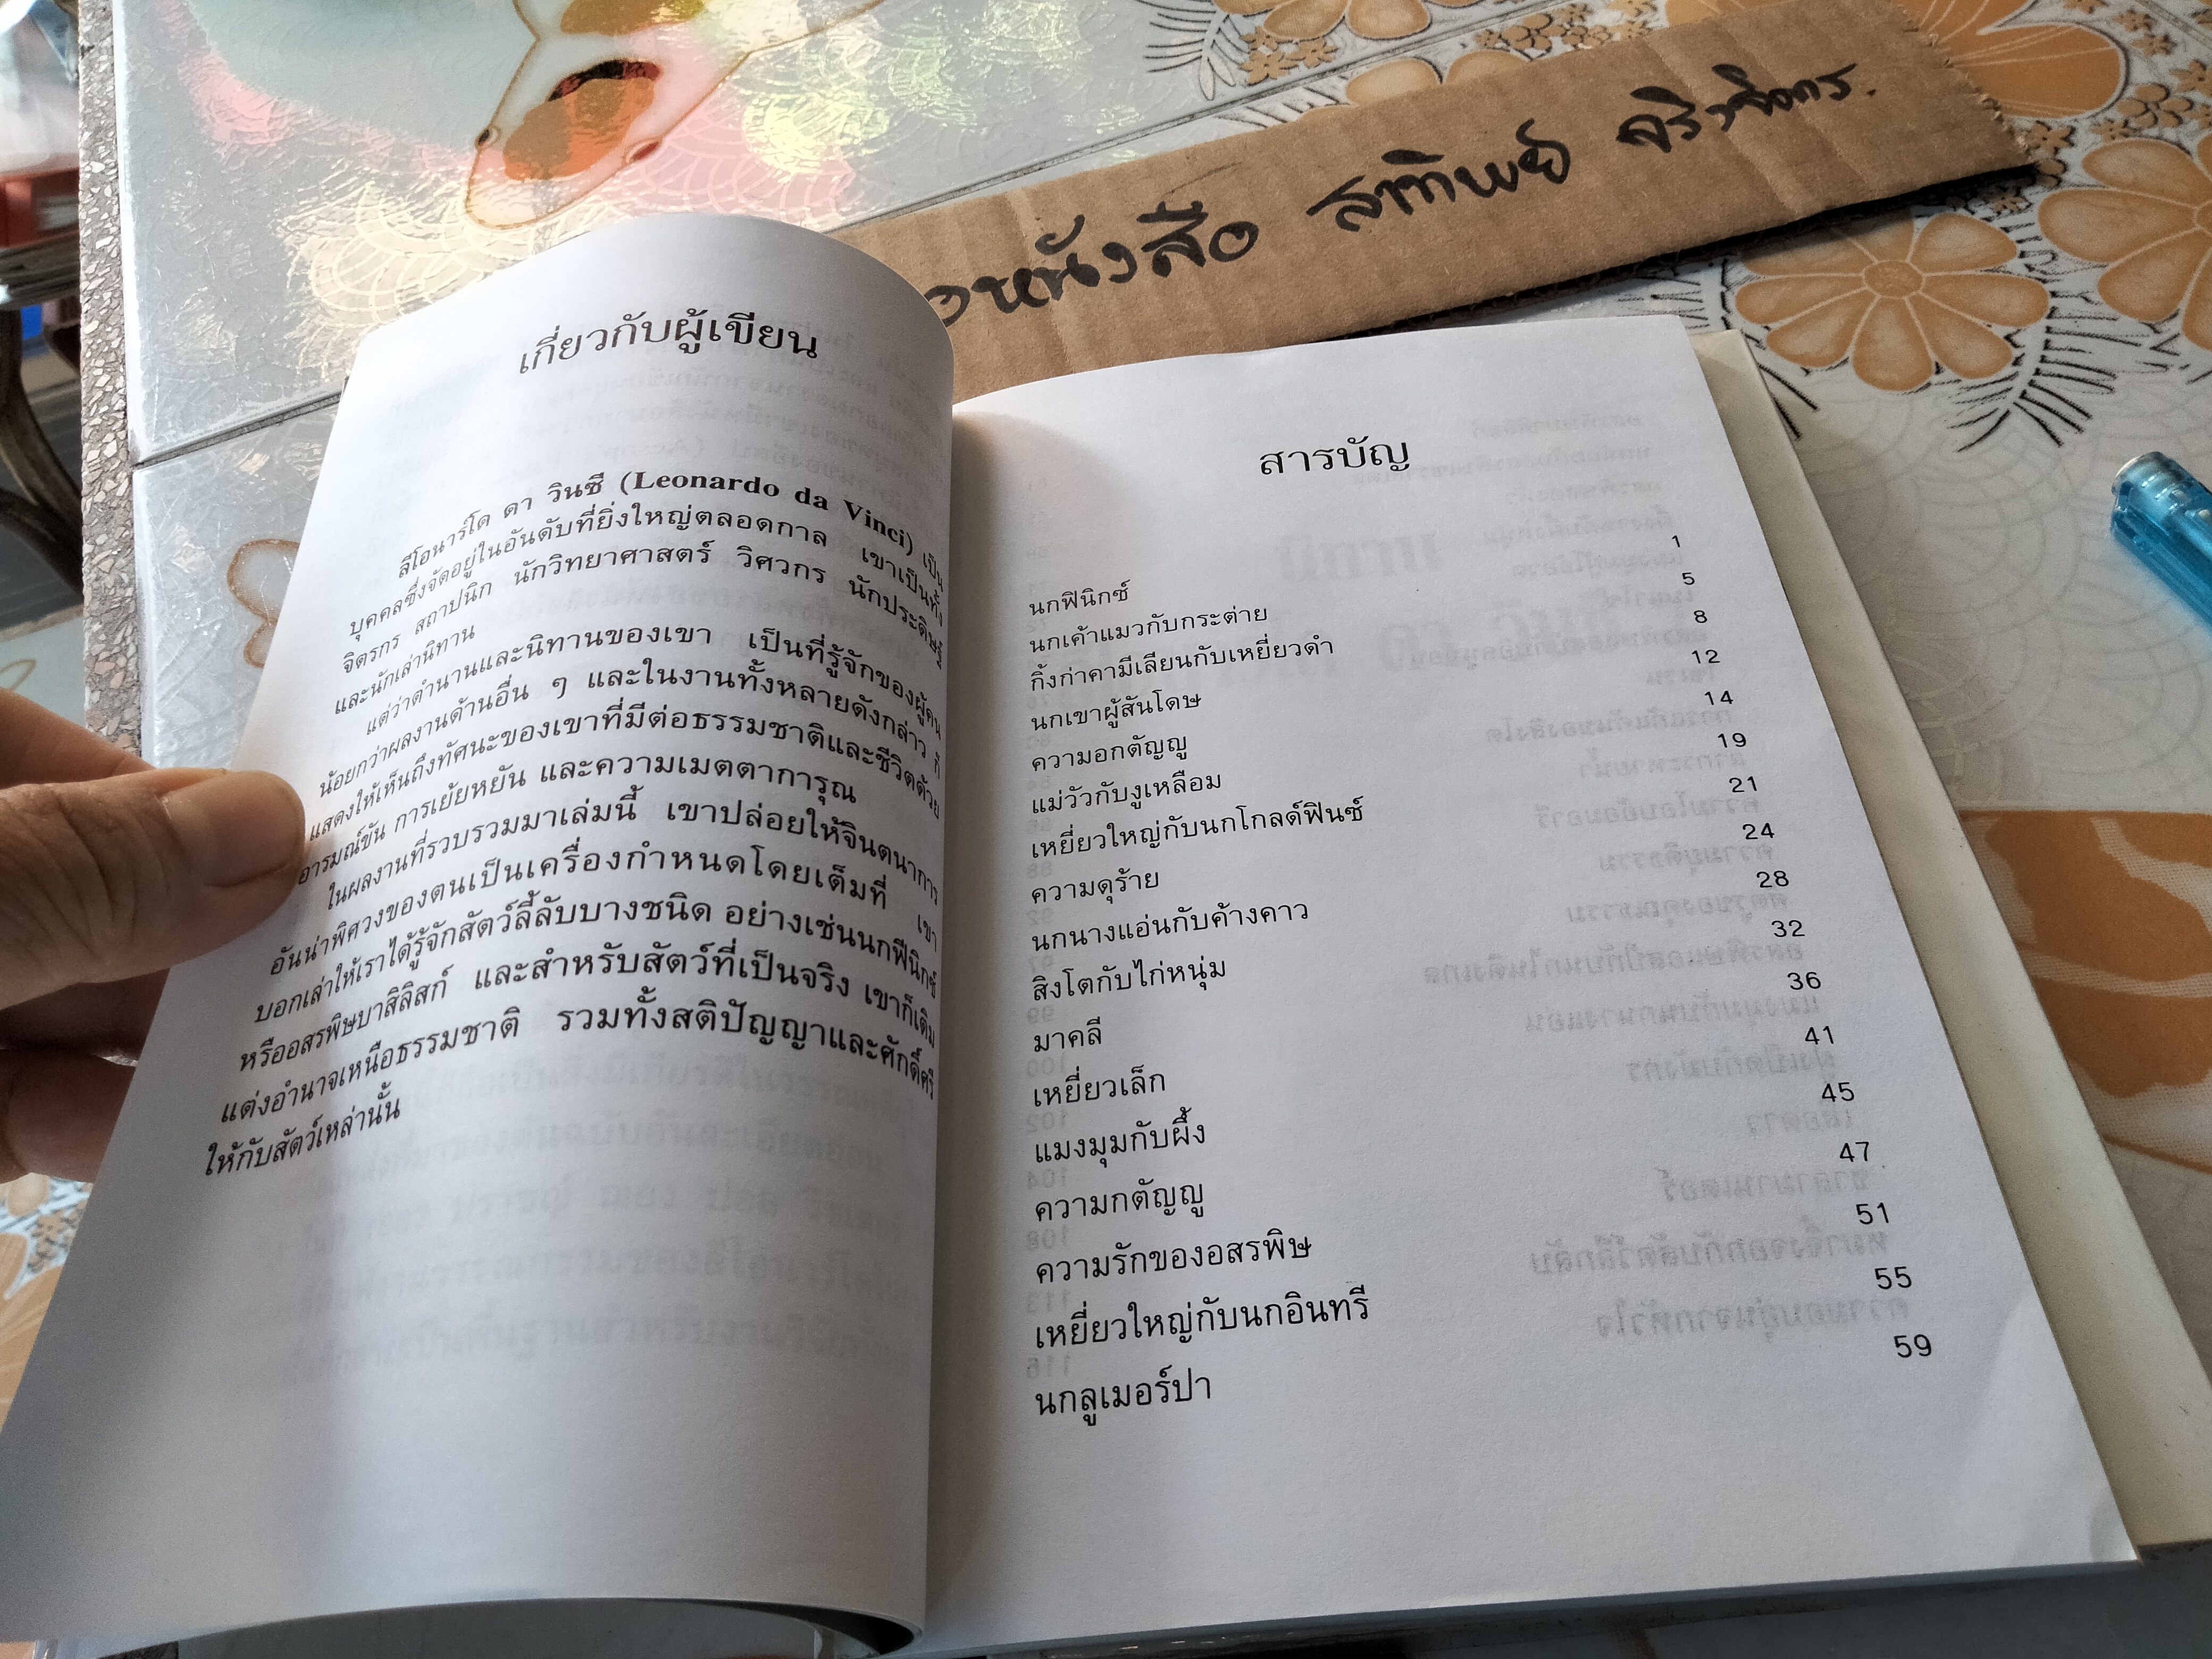 หนังสือ สาทิพย์
เกี่ยวกับผู้เขียน
ลีโอนาร์โด ดา วินซี (Leonardo da Vinci) เป็น
บุคคลซึ่งจัดอยู่ในอันดับที่ยิ่งใหญ่ตลอดกาล เขาเป็นทั้ง
จิตรกร สถาปนิก นักวิทยาศาสตร์ วิศวกร นักประดิษฐ์
และนักเล่านิทาน
แต่ว่าตำนานและนิทานของเขา เป็นที่รู้จักของผู้คน
น้อยกว่าผลงานด้านอื่น ๆ และในงานทั้งหลายดังกล่าว ก็
แสดงให้เห็นถึงทัศนะของเขาที่มีต่อธรรมชาติและชีวิตด้วย
อารมณ์ขัน การเย้ยหยัน และความเมตตาการุณ
ในผลงานที่รวบรวมมาเล่มนี้ เขาปล่อยให้จินตนาการ
อันน่าพิศวงของตนเป็นเครื่องกำหนดโดยเต็มที่ เขา
บอกเล่าให้เราได้รู้จักสัตว์ลี้ลับบางชนิด อย่างเช่นนกฟีนิกซ์
หรืออสรพิษบาสิลิสก์ และสำหรับสัตว์ที่เป็นจริง เขาก็เติม
แต่งอำนาจเหนือธรรมชาติ รวมทั้งสติปัญญาและศักดิ์ศรี
ให้กับสัตว์เหล่านั้น
สารบัญ
นกฟินิกซ์ 1
นกเค้าแมวกับกระต่าย 5
กิ้งก่าคามีเลียนกับเหยี่ยวดำ 8
นกเขาผู้สันโดษ 12
ความอกตัญญู 14
แม่วัวกับงูเหลือม 19
เหยี่ยวใหญ่กับนกโกลด์ฟินซ์ 21
ความดุร้าย 24
นกนางแอ่นกับค้างคาว 28
สิงโตกับไก่หนุ่ม 32
มาคลี 36
เหยี่ยวเล็ก 41
แมงมุมกับผึ้ง 45
ความกตัญญู 47
ความรักของอสรพิษ 51
เหยี่ยวใหญ่กับนกอินทรี 55
นกลูเมอร์ปา 59